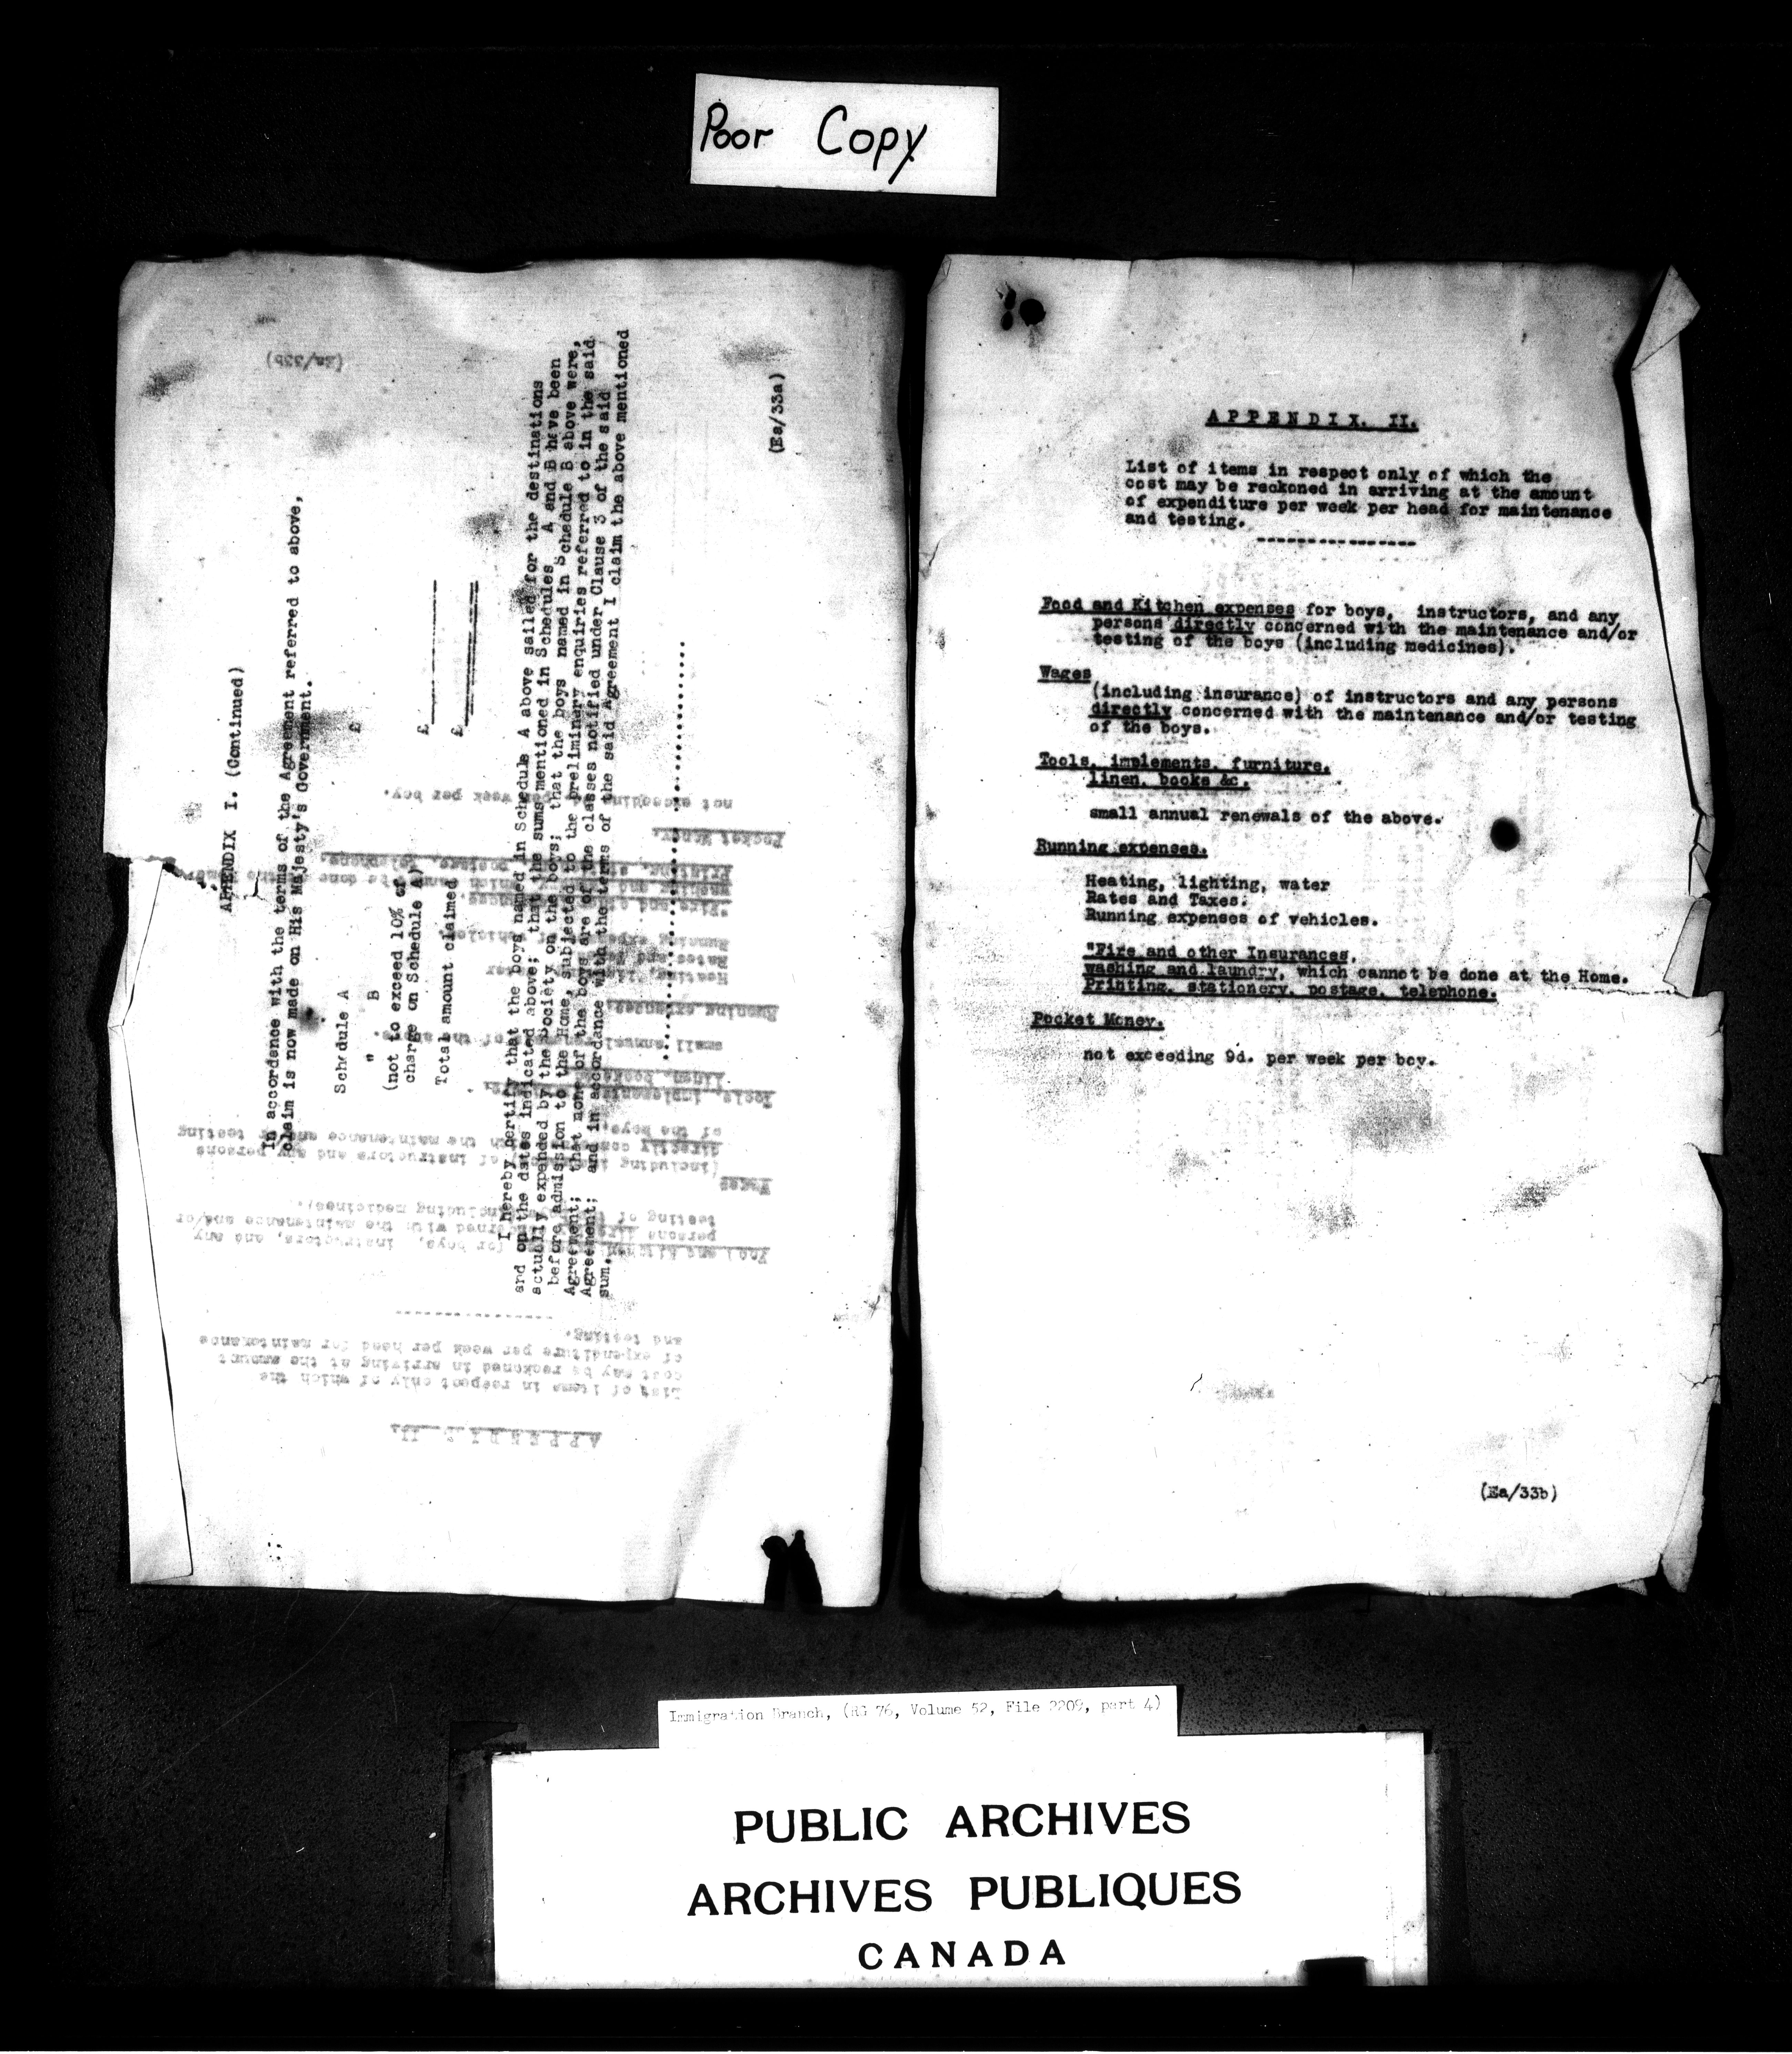 Poor Copy
(Ea/33b)
APPENDIX I. (Continued)
In accordance with the terms of the Agreement referred to above,
claim is now made on His Majesty's Government.
Schedule A £
" B
(not to exceed 10% of
charge on Schedule A) £
Total amount claimed £
I hereby certify that the boys named in Schedule A above sailed for the destinations
and on the dates indicated above; that the sums mentioned in Schedules A and B have been
actually expended by the Society on the boys; that the boys named in Schedule B above were,
before admission to the Home, subjected to the preliminary enquiries referred to in the said
Agreement; that none of the boys are of the classes notified under Clause 3 of the said
Agreement; and in accordance with the terms of the said Agreement I claim the above mentioned
sum.
(Ea/33a)
APPENDIX. II.
List of items in respect only of which the
cost may be reckoned in arriving at the amount
of expenditure per week per head for maintenance
and testing.
Food and Kitchen expenses for boys, instructors, and any
persons directly concerned with the maintenance and/or
testing of the boys (including medicines).
Wages
(including insurance) of instructors and any persons
directly concerned with the maintenance and/or testing
of the boys.
Tools, implements, furniture,
linen, books &c.
small annual renewals of the above.
Running expenses.
Heating, lighting, water
Rates and Taxes.
Running expenses of vehicles.
"Fire and other Insurances,
washing and laundry, which cannot be done at the Home.
Printing, stationery, postage, telephone.
Pocket Money.
not exceeding 9d. per week per boy.
(Ea/33b)
Immigration Branch, (RG 76, Volume 52, File 2209, part 4)
PUBLIC ARCHIVES
ARCHIVES PUBLIQUES
CANADA